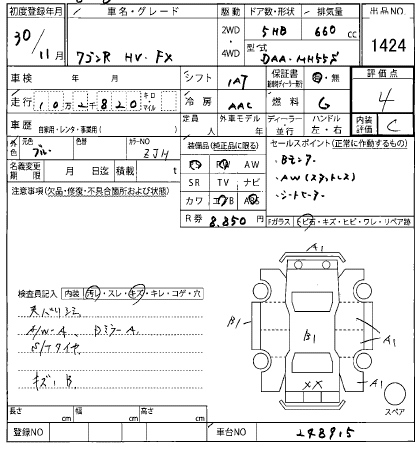 初度登録年月
車名・グレード
駆動
ドア数・形状
排気量
出品NO.
30/11月
ワゴンR HV・FX
2WD
4WD
5HB
660 cc
型式
DAA-MH55S
1424
車検 年 月
シフト
IAT
保証書
・無
評価点
4
走行 10万2千820
キロ
マイル
冷房
AAC
燃料
G
車歴
自家用・レンタ・事業用( )
定員
人
外車モデル
年
ディーラー・並行
ハンドル
左・右
内装評価
C
外色
元色
ブルー
色替
カラーNO
ZJH
装備品(純正品に限る)
セールスポイント(正常に作動するもの)
名義変更期限
月 日迄
積載
t
PS PW AW
SR TV ナビ
カワ エアB ABS
・Bモニター
・AW(スタッドレス)
・シートヒーター
注意事項(欠品・修復・不具合箇所および状態)
R券
8.850円
Fガラス トビ石・キズ・ヒビ・ワレ・リペア跡
A1
B1
B1
A1
A1
XX
スペア
検査員記入
内装 汚レ・スレ・キズ・キレ・コゲ・穴
A/W-A. DミラーA.
S/Tタイヤ
キズ・B.
長さ cm
幅 cm
高さ cm
登録NO
車台NO
248915